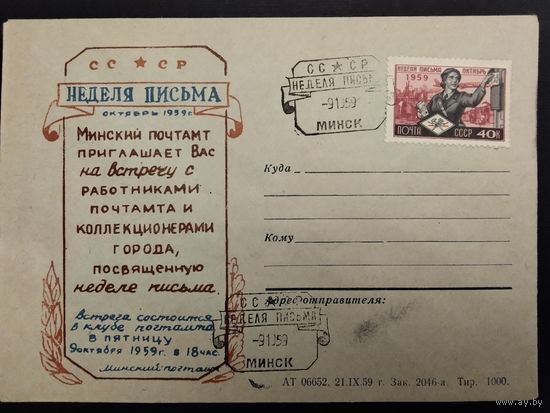 СС ★ СР
НЕДЕЛЯ ПИСЬМА
ОКТЯБРЬ 1959г.
Минский почтамт
приглашает Вас
на встречу с
работниками
почтамта и
коллекционерами
города,
посвященную
неделе письма.
Встреча состоится
в клубе почтамта
в пятницу
9 октября 1959г. в 18 час.
Минский почтамт
СС ★ СР
НЕДЕЛЯ ПИСЬМ
-91059
МИНСК
НЕДЕЛЯ ПИСЬМА ОКТЯБРЬ
1959
ПОЧТА СССР 40К
Куда
Кому
Адрес отправителя:
СС ★ СР
НЕДЕЛЯ ПИСЬМА
-91059
МИНСК
АТ 06652, 21.IX.59 г. Зак. 2046-а. Тир. 1000.
www.ay.by